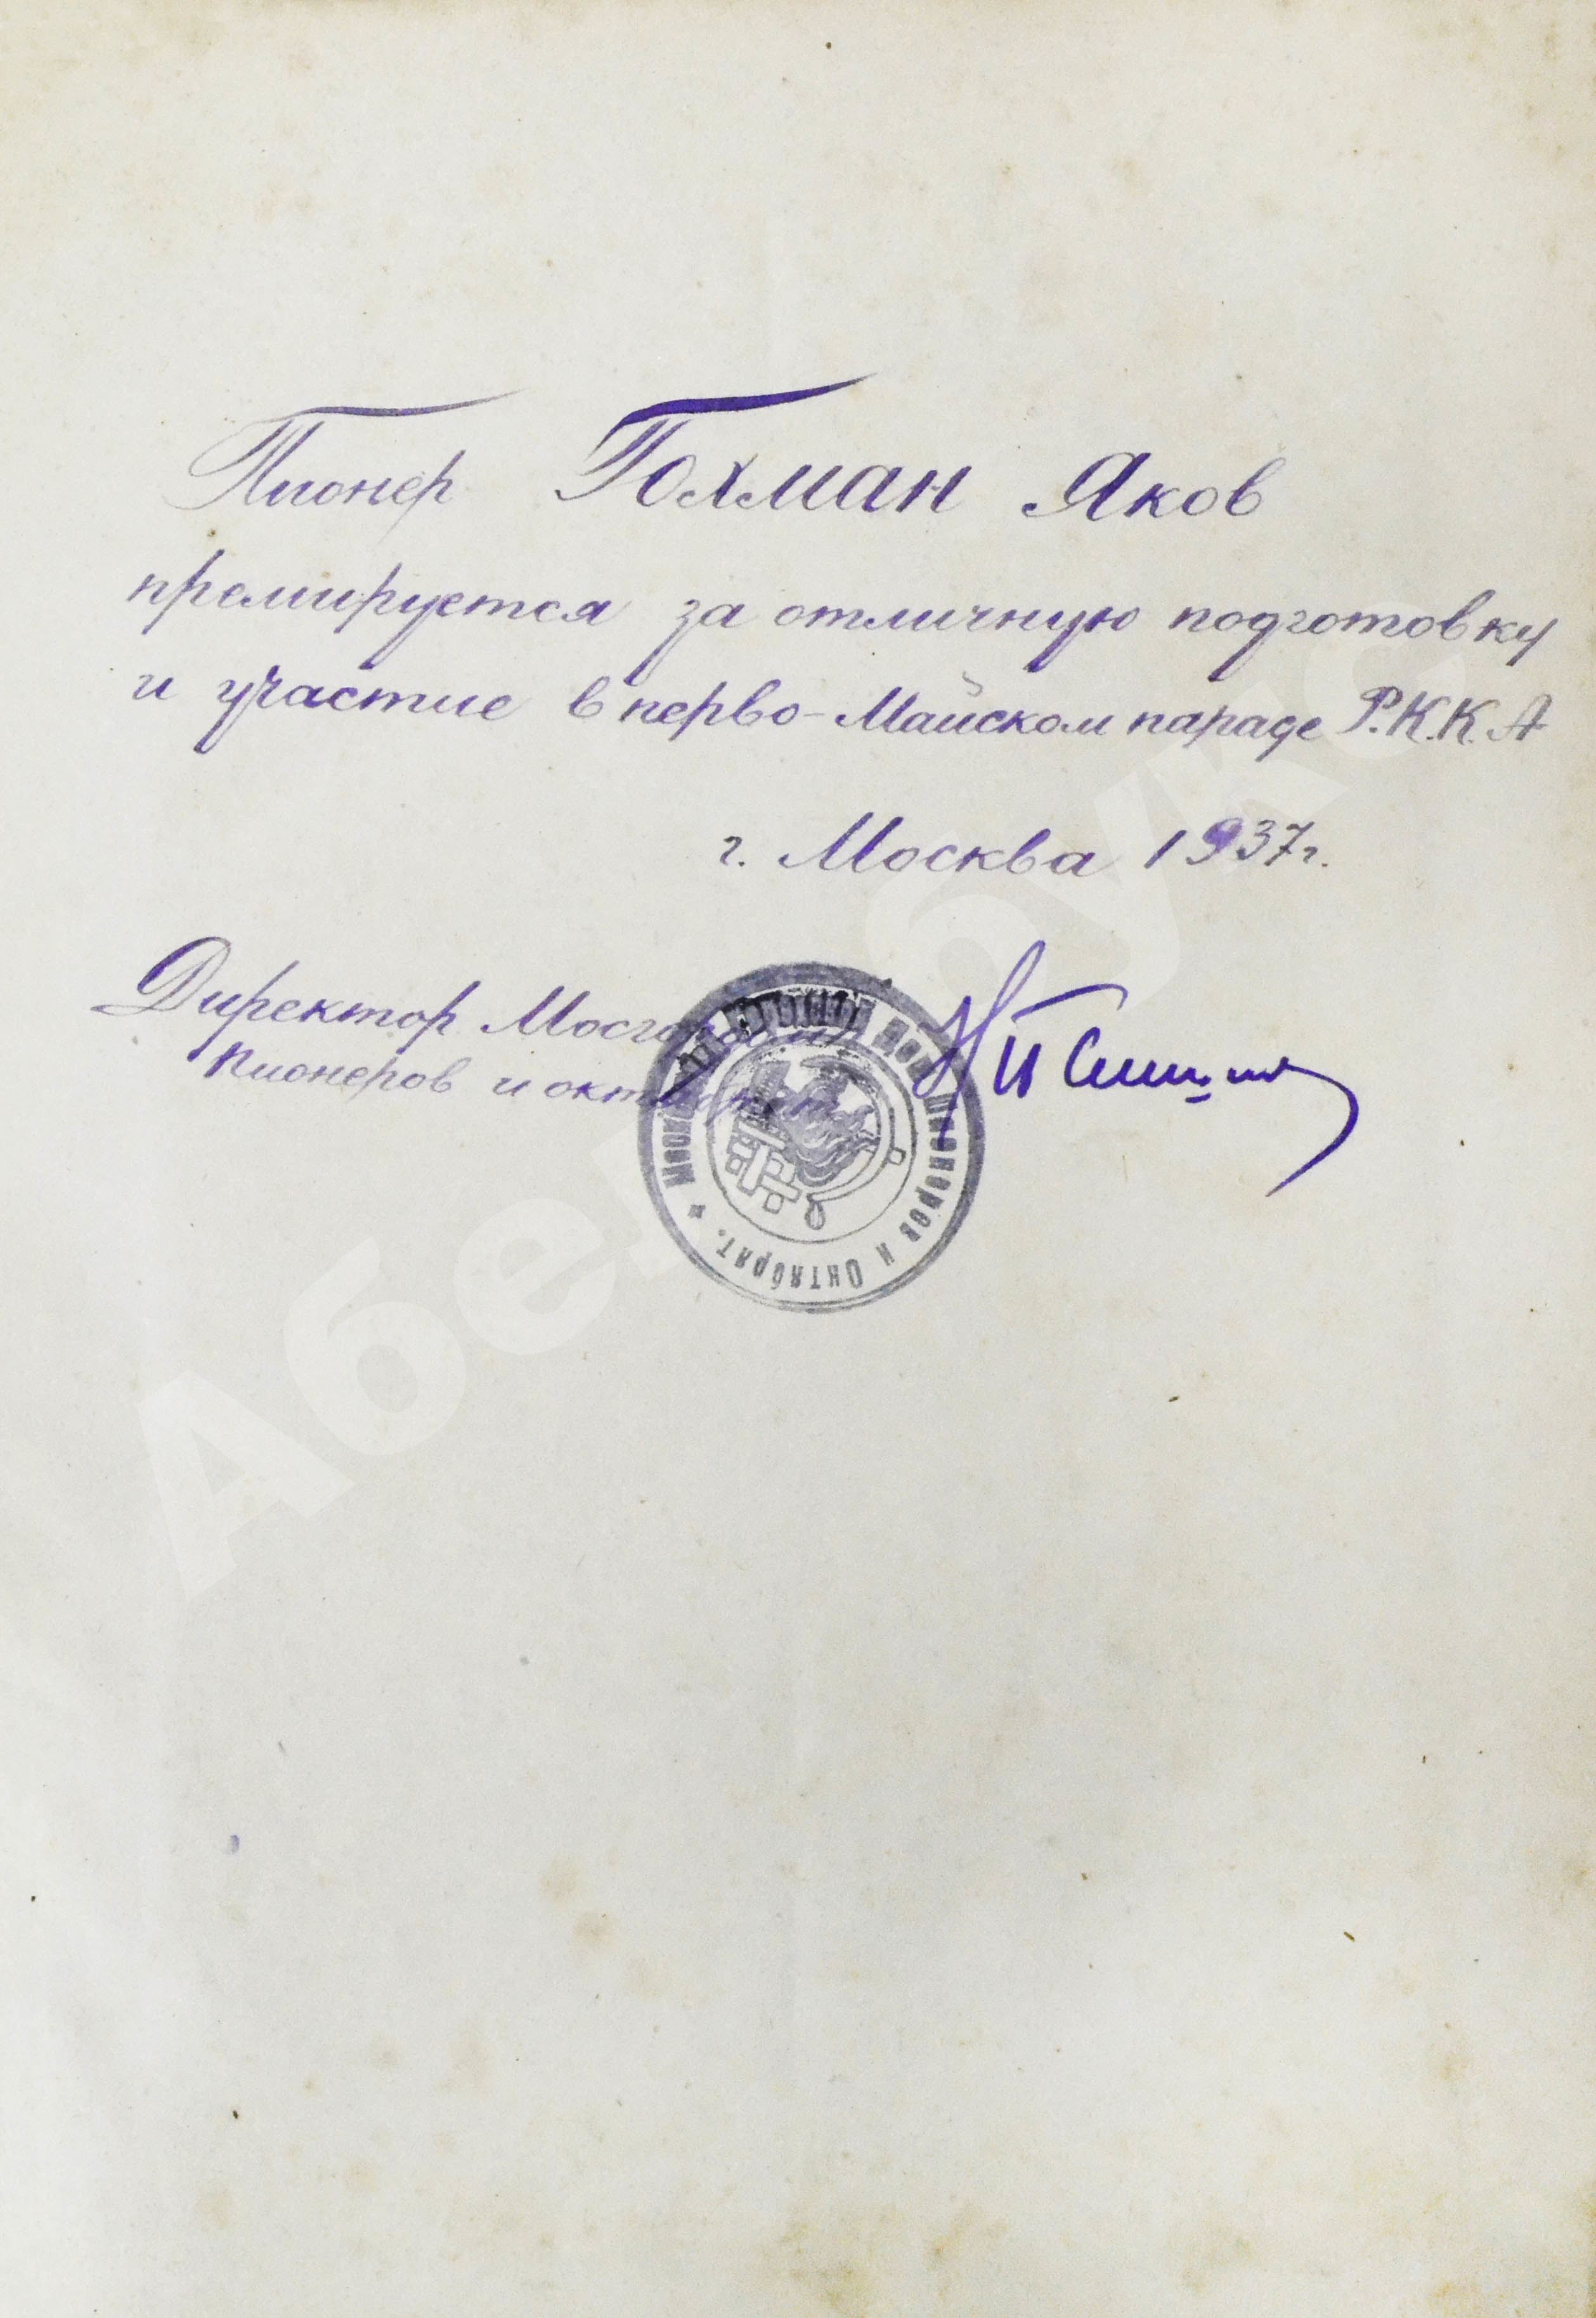 Пионер Гохман Яков
премируется за отличную подготовку
и участие в перво-Майском параде Р.К.К.А
г. Москва 1937г.
Директор
Пионеров и октябрят
Дом Пионеров и Октябрят.